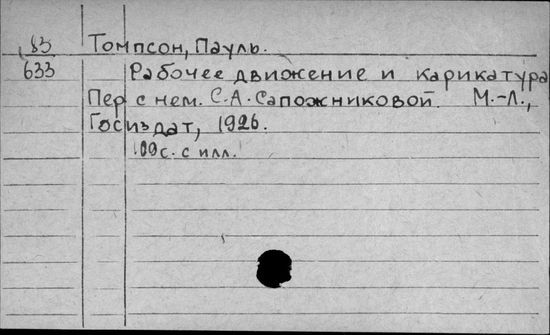 83 Томпсон, Пауль.
633 Рабочее движение и карикатура
Пер с нем. С.А. Сапожниковой. М.-Л.,
Госиздат, 1926.
100с. с илл.